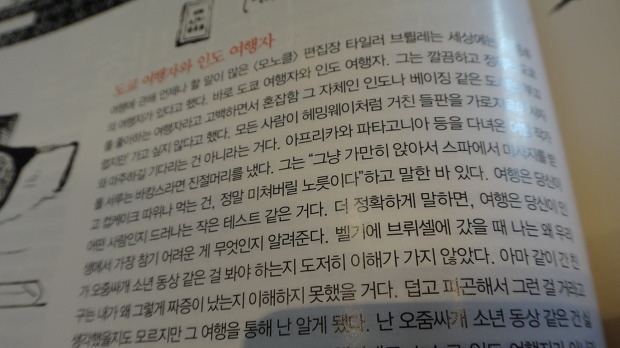 도쿄 여행자와 인도 여행자
여행에 관해 언제나 할 말이 많은 <모노클> 편집장 타일러 브륄레는 세상에는
의 여행자가 있다고 했다. 바로 도쿄 여행자와 인도 여행자. 그는 깔끔하고
을 좋아하는 여행자라고 고백하면서 혼잡함 그 자체인 인도나 베이징 같은
가고 싶지 않다고 했다. 모든 사람이 헤밍웨이처럼 거친 들판을
와 마주하길 기다리는 건 아니라는 거다. 아프리카와 파타고니아 등을 다녀온 작가
를 서루는 바캉스라면 진절머리를 냈다. 그는 “그냥 가만히 앉아서 스파에서 마사지를 받
고 컵케이크 따위나 먹는 건, 정말 미쳐버릴 노릇이다”하고 말한 바 있다. 여행은 당신이
어떤 사람인지 드러나는 작은 테스트 같은 거다. 더 정확하게 말하면, 여행은 당신이 인
생에서 가장 참기 어려운 게 무엇인지 알려준다. 벨기에 브뤼셀에 갔을 때 나는 왜 우리
가 오줌싸개 소년 동상 같은 걸 봐야 하는지 도저히 이해가 가지 않았다. 아마 같이 간 친
구는 내가 왜 그렇게 짜증이 났는지 이해하지 못했을 거다. 덥고 피곤해서 그런 걸 거라고
생각했을지도 모르지만 그 여행을 통해 난 알게 됐다. 난 오줌싸개 소년 동상 같은 건 실